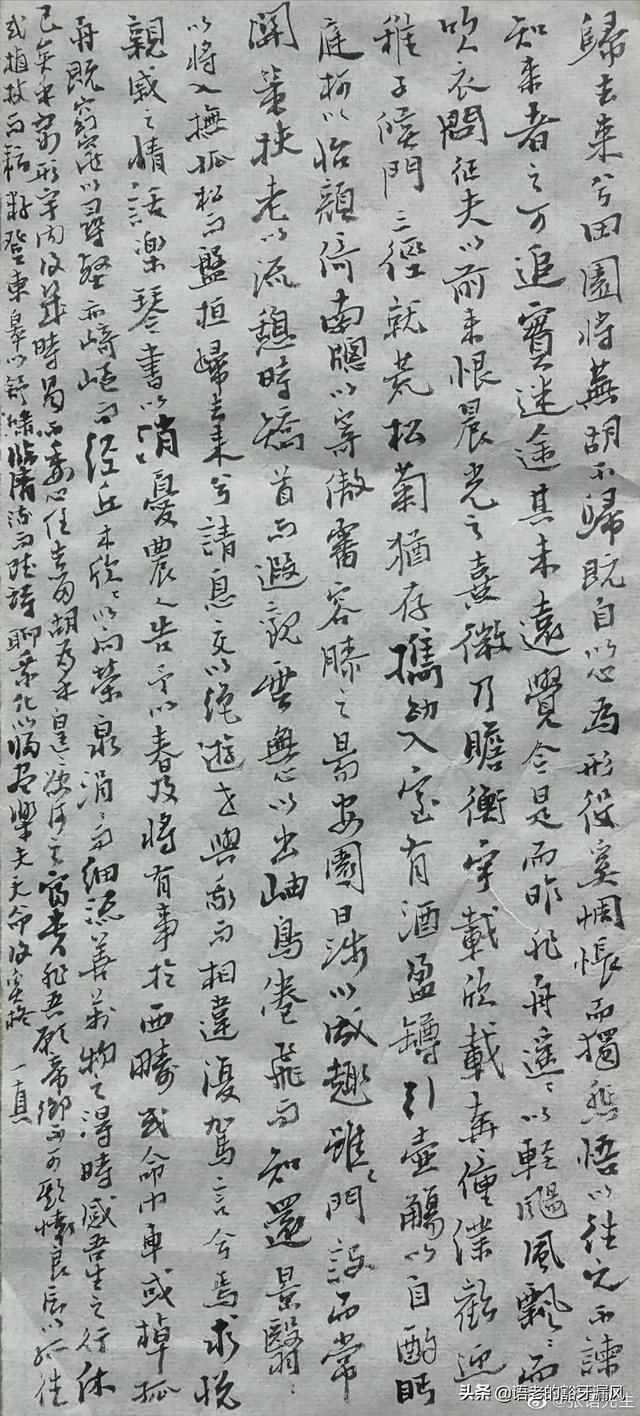 歸去來兮田園將蕪胡不歸既自以心為形役奚惆悵而獨悲悟以往之不諫
知來者之可追實迷途其未遠覺今是而昨非舟遙〻以輕颺風飄〻而
吹衣問征夫以前恨晨光之熹微乃瞻衡宇載欣載奔僮僕歡迎
稚子候門三徑就荒松菊猶存攜幼入室有酒盈罇引壺觴以自酌眄
庭柯以怡顏倚南牕以寄傲審容膝之易安園日涉以成趣雖門設而常
關策扶老以流憩時矯首而遐觀雲無心以出岫鳥倦飛而知還景翳〻
以將入撫孤松而盤桓歸去來兮請息交以絕遊世與我而相違復駕言兮焉求悅
親戚之情話樂琴書以消憂農人告予以春及將有事於西疇或命巾車或棹孤
舟既窈窕以尋壑亦崎嶇而經丘木欣〻以向榮泉涓〻而細流善萬物之得時感吾生之行休
已矣乎寓形宇內復幾時曷不委心任去留胡為乎遑〻欲何之富貴非吾願帝鄉不可期懷良辰以孤往
或植杖而耘耔登東皋以舒嘯臨清流而賦詩聊乘化以歸盡樂夫天命復奚疑 一真
头条 @语老的豁牙漏风
@张语先生